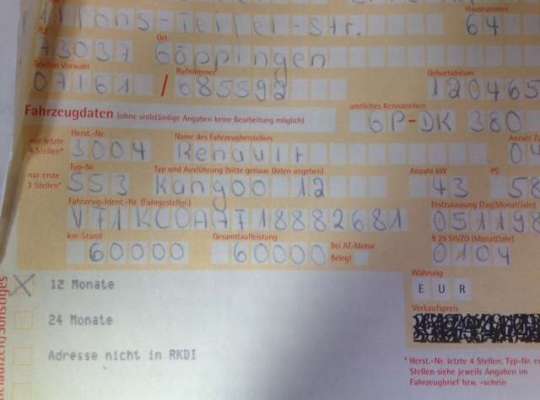 Hausnummer
-Str. 64
Ort
73037 Göppingen
Telefon Vorwahl Rufnummer Geburtsdatum
07161 / 685592 120465
Fahrzeugdaten (ohne vollständige Angaben keine Bearbeitung möglich) amtliches Kennzeichen
GP-DK 380
Herst.-Nr. Name des Fahrzeugherstellers
nur letzte 4 Stellen* 3004 Renault 04
Typ-Nr. Typ und Ausführung (bitte genaue Daten angeben) Anzahl kW PS
nur erste 3 Stellen* 553 Kangoo 12 43 58
Fahrzeug-Ident.-Nr. (Fahrgestellnr.) Erstzulassung (Tag/Monat/Jahr)
VF1KC0A7718882681 051198
km-Stand Gesamtlaufleistung Bei AT-Motor (Monat/Jahr)
60000 60000 Beleg! 0104
X 12 Monate
Währung
EUR
24 Monate
Verkaufspreis
Adresse nicht in RKDI
* Herst.-Nr. letzte 4 Stellen, Typ-Nr.
Stellen siehe jeweils Angaben im
Fahrzeugbrief bzw. -schein